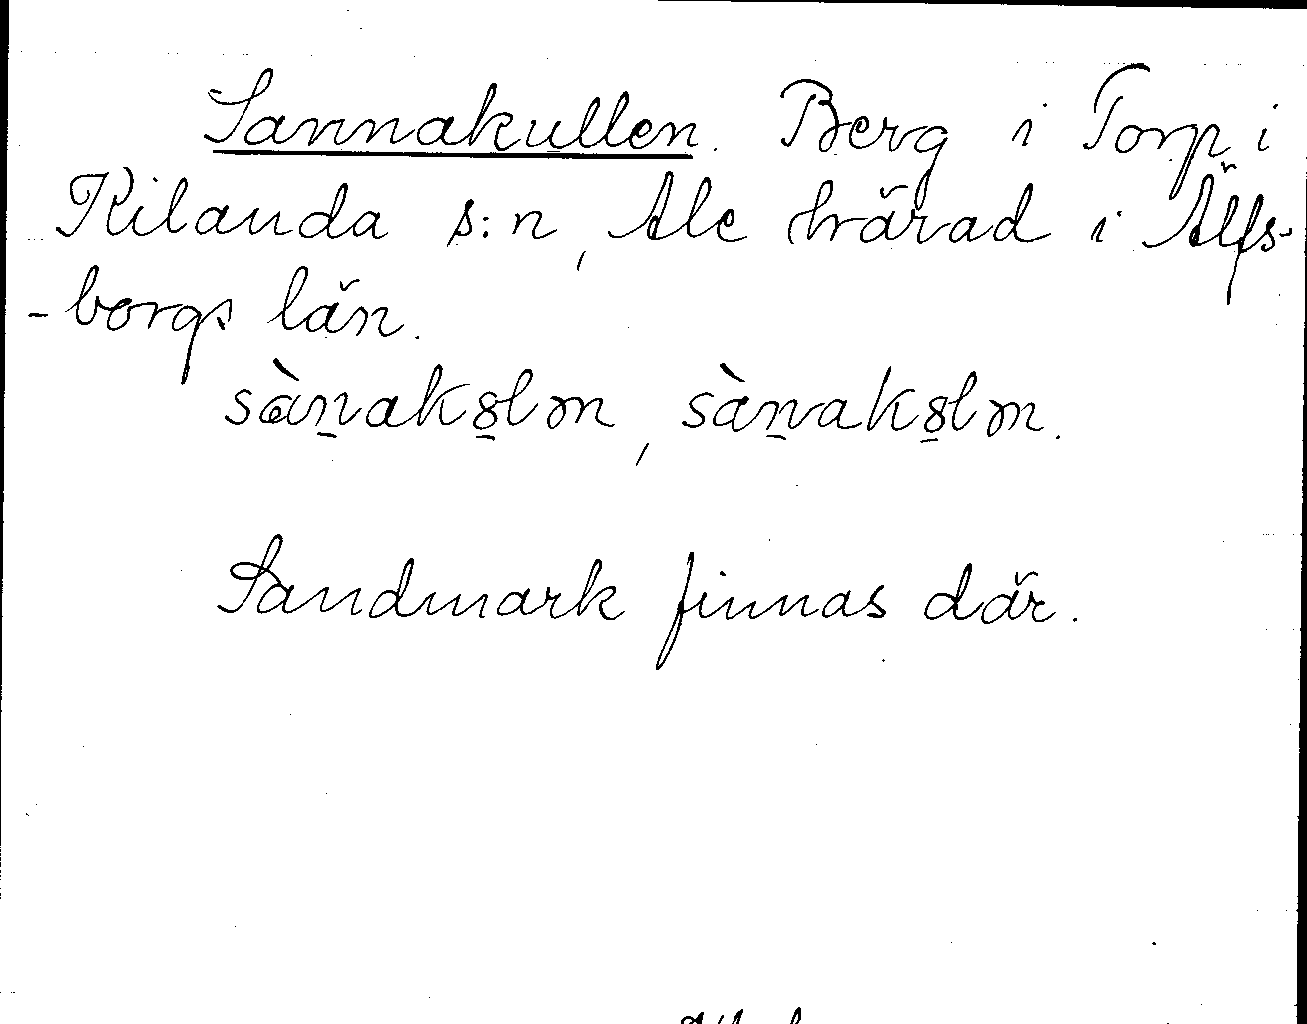 Sannakullen. Berg i Torp i
Kilanda s:n, Ale härad i Älfs-
-borgs län.
sàn̠ak8̠lən, sàn̠ak8̠lən.
Sandmark finnas där.